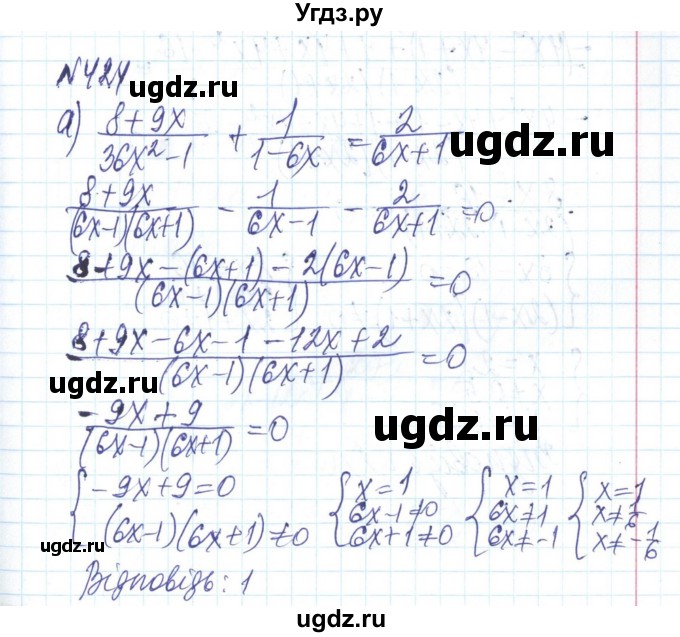 Угдз.ру
№424
ugdz.ru
а) (8+9x)/(36x²-1) + 1/(1-6x) = 2/(6x+1)
ugdz.ru
(8+9x)/((6x-1)(6x+1)) - 1/(6x-1) - 2/(6x+1) = 0
(8+9x-(6x+1)-2(6x-1))/((6x-1)(6x+1)) = 0
(8+9x-6x-1-12x+2)/((6x-1)(6x+1)) = 0
ugdz.ru
(-9x+9)/((6x-1)(6x+1)) = 0
ugdz.ru
{ -9x+9=0 { x=1 { x=1 { x=1
(6x-1)(6x+1)≠0 6x-1≠0 6x≠1 x≠1/6
6x+1≠0 6x≠-1 x≠-1/6
ugdz.ru
ugdz.ru
Відповідь: 1
ugdz.ru